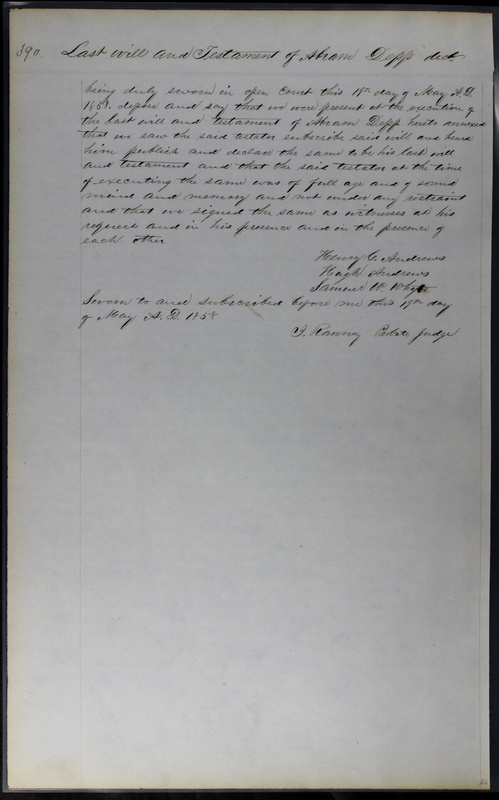 390 Last will and Testament of Abram Depp dect.
being duly sworn in open Court this 19th day of May A.D.
1858. depose and say that we were present at the execution of
the last will and testament of Abram Depp hereto annexed
that we saw the said testator subscribe said will and heard
him publish and declare the same to be his last will
and testament and that the said testator at the time
of executing the same was of full age and of sound
mind and memory and not under any restraint
and that we signed the same as witnesses at his
request and in his presence and in the presence of
each other
Henry C. Andrews
Hugh Andrews
Samuel W.
Sworn to and subscribed before me this 19th day
of May A. D. 1858
J. Ranney Probate Judge